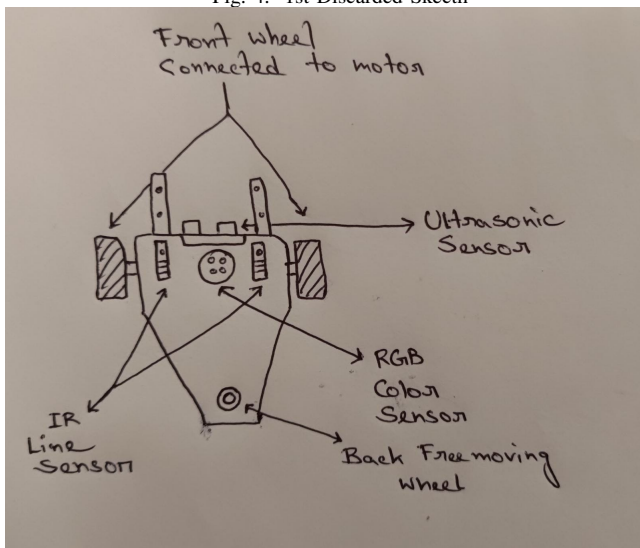 Fig. 4. 1st Discarded Skecth
Front wheel
Connected to motor
Ultrasonic
Sensor
RGB
Color
Sensor
IR
Line
Sensor
Back Freemoving
Wheel